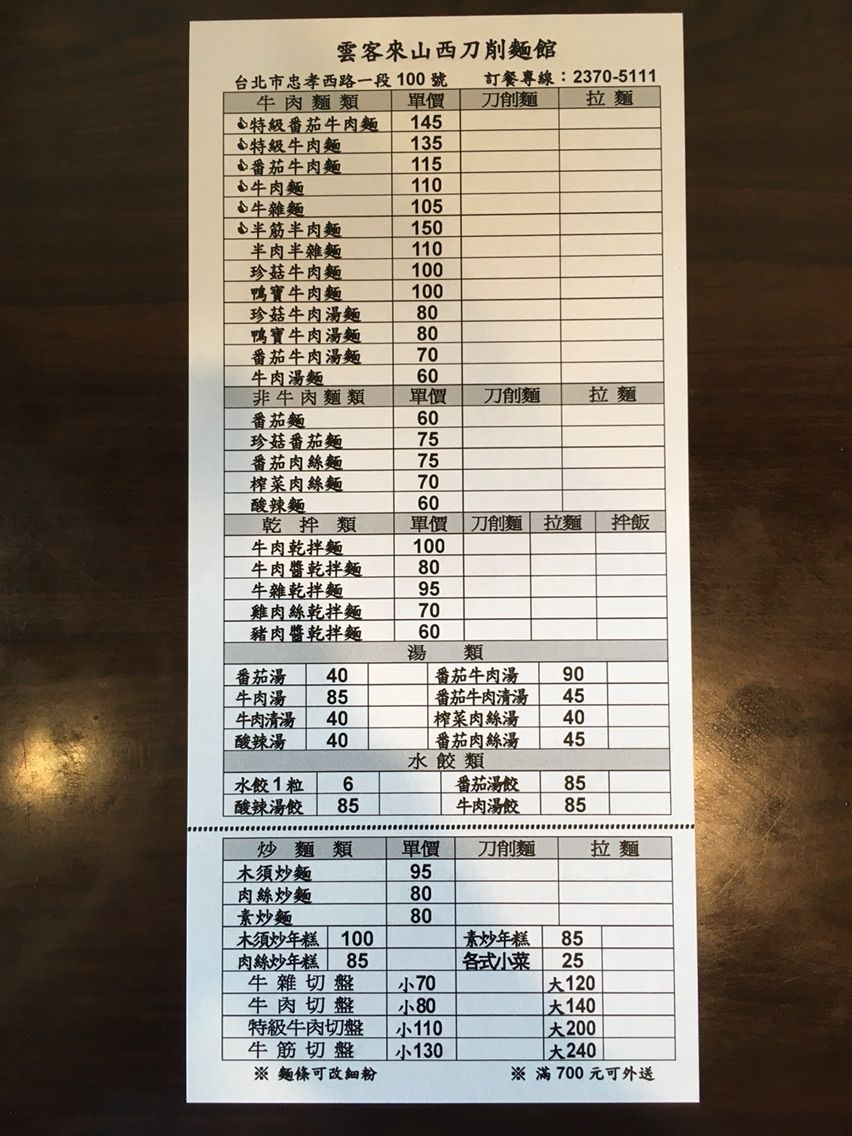 雲客來山西刀削麵館
台北市忠孝西路一段100號 訂餐專線：2370-5111
牛肉麵類 單價 刀削麵 拉麵
特級番茄牛肉麵 145
特級牛肉麵 135
番茄牛肉麵 115
牛肉麵 110
牛雜麵 105
半筋半肉麵 150
半肉半雜麵 110
珍菇牛肉麵 100
鴨寶牛肉麵 100
珍菇牛肉湯麵 80
鴨寶牛肉湯麵 80
番茄牛肉湯麵 70
牛肉湯麵 60
非牛肉麵類 單價 刀削麵 拉麵
番茄麵 60
珍菇番茄麵 75
番茄肉絲麵 75
榨菜肉絲麵 70
酸辣麵 60
乾拌類 單價 刀削麵 拉麵 拌飯
牛肉乾拌麵 100
牛肉醬乾拌麵 80
牛雜乾拌麵 95
雞肉絲乾拌麵 70
豬肉醬乾拌麵 60
湯類
番茄湯 40 番茄牛肉湯 90
牛肉湯 85 番茄牛肉清湯 45
牛肉清湯 40 榨菜肉絲湯 40
酸辣湯 40 番茄肉絲湯 45
水餃類
水餃1粒 6 番茄湯餃 85
酸辣湯餃 85 牛肉湯餃 85
炒麵類 單價 刀削麵 拉麵
木須炒麵 95
肉絲炒麵 80
素炒麵 80
木須炒年糕 100 素炒年糕 85
肉絲炒年糕 85 各式小菜 25
牛雜切盤 小70 大120
牛肉切盤 小80 大140
特級牛肉切盤 小110 大200
牛筋切盤 小130 大240
※ 麵條可改細粉 ※ 滿700元可外送